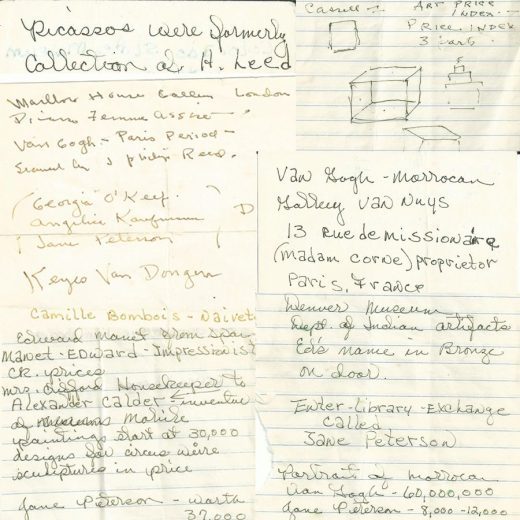 Picassos were formerly
Collection of H. Leed
House London
Femme Assise
Van Gogh - Paris Period -
(Georgia O'Keef
Angelica Kaufmann
Jane Peterson
D
Van Dongen
Camille Bombois - Naivet
Edward Manet from Spai
Manet - Edward - Impressionist
ck. prices
mrs. Clifford Housekeeper to
Alexander Calder - inventor
of Mobile
paintings start at 30,000
designs for circus were
sculptures in price
Jane Peterson - worth
37,000
Art Price
Index -
Price. Index
3 parts
Van Gogh - Morrocan
Gallery Van Nuys
13 Rue de missionaire
(madam corne) proprietor
Paris, France
Denver Museum
Dept. of Indian artifacts
Ed's name in Bronze
on door.
Enter-Library-Exchange
Called
Jane Peterson
Portrait of Morrocan
Van Gogh - 60,000,000
Jane Peterson - 8,000-12,000